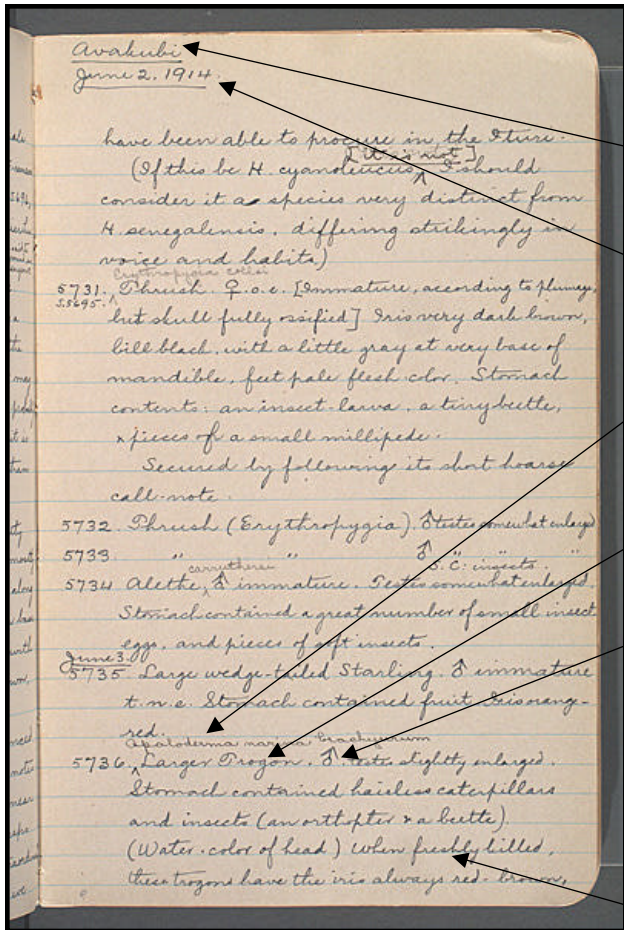 Avakubi
June 2, 1914.
have been able to procure in the Ituri.
[It is not]
(If this be H. cyanoleucus, ^ I should
consider it a species very distinct from
H. senegalensis, differing strikingly in
voice and habits.)
Erythropygia collsi
5731. ^ Thrush. ♀. o.e. [Immature, according to plumage,
S.5695.
but skull fully ossified] Iris very dark brown,
bill black, with a little gray at very base of
mandible, feet pale flesh-color. Stomach
contents: an insect-larva, a tiny beetle,
& pieces of a small millipede.
Secured by following its short hoarse
call-note.
5732. Thrush (Erythropygia). ♂ testes somewhat enlarged
5733. " " ♂ " " "
carrutheri S.C.: insects.
5734 Alethe, ^ ♂ immature. Testes somewhat enlarged.
Stomach contained a great number of small insect
eggs, and pieces of soft insects.
June 3.
5735. Large wedge-tailed Starling. ♂ immature
t.n.e. Stomach contained fruit. Iris orange-
red.
Apaloderma narina brachyurum
5736. ^ Larger Trogon. ♂. testes slightly enlarged.
Stomach contained hairless caterpillars
and insects (an orthopter & a beetle).
(Water-color of head) When freshly killed,
these trogons have the iris always red-brown,